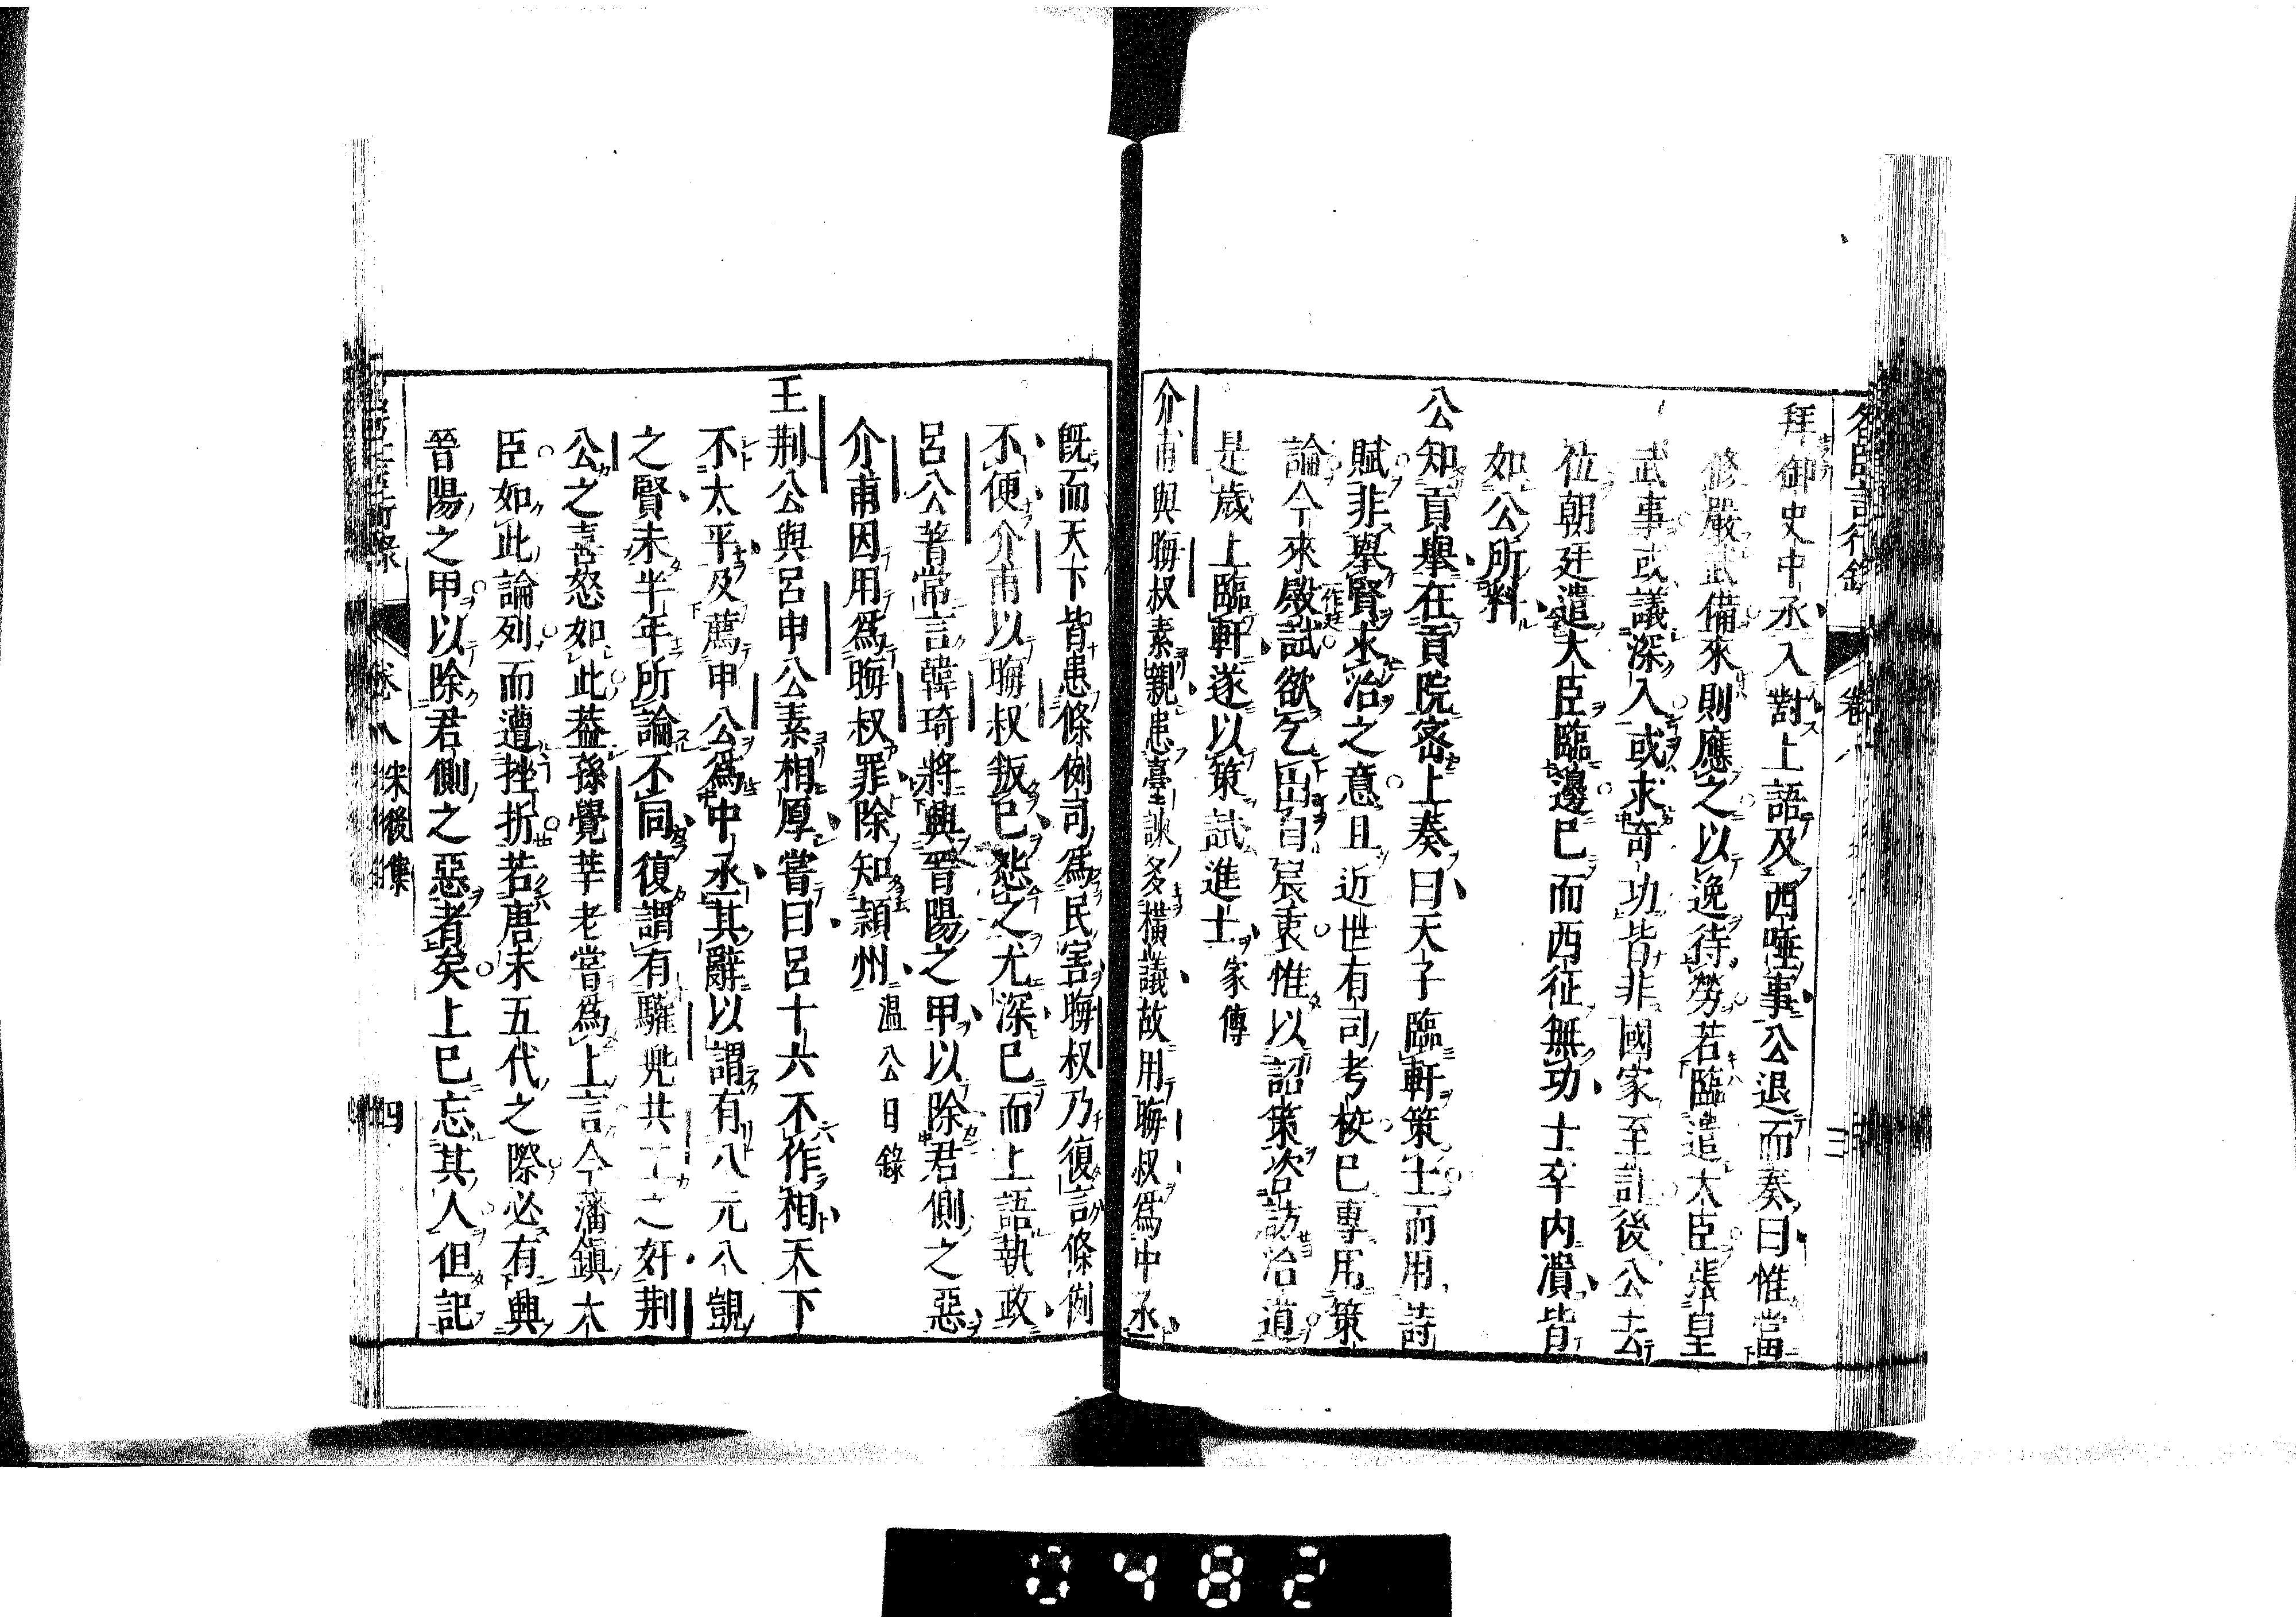 名臣言行錄 卷八 三
拜御史中丞入對上語及西陲事公退而奏曰惟當
修嚴武備來則應之以逸待勞若臨遣大臣張皇
武事或議深入或求奇功皆非國家至計後公去
位朝廷遣大臣臨邊已而西征無功士卒內潰皆
如公所料
公知貢舉在貢院密上奏曰天子臨軒策士而用詩
賦非舉賢求治之意且近世有司考校已專用策
論今來殿試欲乞出自宸衷惟以詔策咨訪治道
作庭
是歲上臨軒遂以策試進士家傳
介甫與晦叔素親患臺諫多橫議故用晦叔爲中丞
既而天下皆患條例司爲民害晦叔乃復言條例
不便介甫以晦叔叛已怨之尤深已而上語執政
呂公著常言韓琦將興晉陽之甲以除君側之惡
介甫因用爲晦叔罪除知潁州溫公日錄
王荆公與呂申公素相厚嘗曰呂十六不作相天下
不太平及薦申公爲中丞其辭以謂有八元八凱
之賢未半年所論不同復謂有驩兜共工之奸荆
公之喜怒如此葢孫覺莘老嘗爲上言今藩鎮大
臣如此論列而遭挫折若唐末五代之際必有興
晉陽之甲以除君側之惡者矣上已忘其人但記
言行錄 卷八 宋後集 四
0482